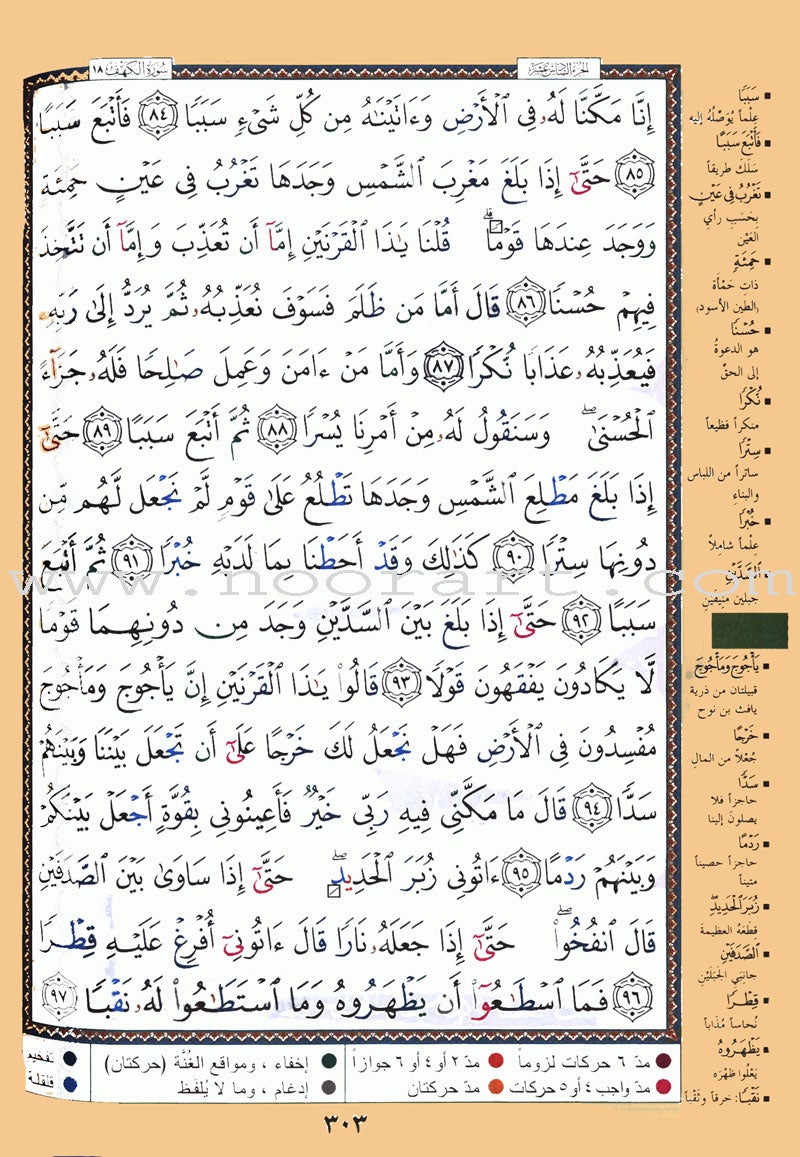 سُورَةُ الكَهْف ١٨
الجُزءُ السَّادِسُ عَشَر
إِنَّا مَكَّنَّا لَهُۥ فِى ٱلْأَرْضِ وَءَاتَيْنَٰهُ مِن كُلِّ شَىْءٍ سَبَبًا ٨٤ فَأَتْبَعَ سَبَبًا
٨٥ حَتَّىٰٓ إِذَا بَلَغَ مَغْرِبَ ٱلشَّمْسِ وَجَدَهَا تَغْرُبُ فِى عَيْنٍ حَمِئَةٍ
وَوَجَدَ عِندَهَا قَوْمًا ۗ قُلْنَا يَٰذَا ٱلْقَرْنَيْنِ إِمَّآ أَن تُعَذِّبَ وَإِمَّآ أَن تَتَّخِذَ
فِيهِمْ حُسْنًا ٨٦ قَالَ أَمَّا مَن ظَلَمَ فَسَوْفَ نُعَذِّبُهُۥ ثُمَّ يُرَدُّ إِلَىٰ رَبِّهِۦ
فَيُعَذِّبُهُۥ عَذَابًا نُّكْرًا ٨٧ وَأَمَّا مَنْ ءَامَنَ وَعَمِلَ صَٰلِحًا فَلَهُۥ جَزَآءً
ٱلْحُسْنَىٰ ۖ وَسَنَقُولُ لَهُۥ مِنْ أَمْرِنَا يُسْرًا ٨٨ ثُمَّ أَتْبَعَ سَبَبًا ٨٩ حَتَّىٰٓ
إِذَا بَلَغَ مَطْلِعَ ٱلشَّمْسِ وَجَدَهَا تَطْلُعُ عَلَىٰ قَوْمٍ لَّمْ نَجْعَل لَّهُم مِّن
دُونِهَا سِتْرًا ٩٠ كَذَٰلِكَ وَقَدْ أَحَطْنَا بِمَا لَدَيْهِ خُبْرًا ٩١ ثُمَّ أَتْبَعَ
سَبَبًا ٩٢ حَتَّىٰٓ إِذَا بَلَغَ بَيْنَ ٱلسَّدَّيْنِ وَجَدَ مِن دُونِهِمَا قَوْمًا
لَّا يَكَادُونَ يَفْقَهُونَ قَوْلًا ٩٣ قَالُوا۟ يَٰذَا ٱلْقَرْنَيْنِ إِنَّ يَأْجُوجَ وَمَأْجُوجَ
مُفْسِدُونَ فِى ٱلْأَرْضِ فَهَلْ نَجْعَلُ لَكَ خَرْجًا عَلَىٰٓ أَن تَجْعَلَ بَيْنَنَا وَبَيْنَهُمْ
سَدًّا ٩٤ قَالَ مَا مَكَّنِّى فِيهِ رَبِّى خَيْرٌ فَأَعِينُونِى بِقُوَّةٍ أَجْعَلْ بَيْنَكُمْ
وَبَيْنَهُمْ رَدْمًا ٩٥ ءَاتُونِى زُبَرَ ٱلْحَدِيدِ ۖ حَتَّىٰٓ إِذَا سَاوَىٰ بَيْنَ ٱلصَّدَفَيْنِ
قَالَ ٱنفُخُوا۟ ۖ حَتَّىٰٓ إِذَا جَعَلَهُۥ نَارًا قَالَ ءَاتُونِىٓ أُفْرِغْ عَلَيْهِ قِطْرًا
٩٦ فَمَا ٱسْطَٰعُوٓا۟ أَن يَظْهَرُوهُ وَمَا ٱسْتَطَٰعُوا۟ لَهُۥ نَقْبًا ٩٧
سَبَبًا
عِلْماً يُوَصِّلُهُ إليه
فَأَتْبَعَ سَبَبًا
سَلَكَ طريقاً
تَغْرُبُ فِى عَيْنٍ
بحَسَبِ رأي
العَيْن
حَمِئَةٍ
ذاتِ حَمْأَة
(الطين الأسود)
حُسْنًا
هو الدعوةُ
إلى الحقِّ
نُكْرًا
منكراً فظيعاً
سِتْرًا
ساتراً من اللباس
والبناءِ
خُبْرًا
عِلْماً شاملاً
السَّدَّيْنِ
جبلين منيفين
يَأْجُوجَ وَمَأْجُوجَ
قبيلتان من ذرية
يافث بن نوح
خَرْجًا
جُعْلاً من المالِ
سَدًّا
حاجزاً فلا
يصلون إلينا
رَدْمًا
حاجزاً حصيناً
متيناً
زُبَرَ الْحَدِيدِ
قِطَعَهُ العظيمة
الصَّدَفَيْنِ
جانبي الجَبَلَيْنِ
قِطْرًا
نُحاساً مُذَاباً
يَظْهَرُوهُ
يَعْلُوا ظهْرَه
نَقْبًا: خرقاً وثَقْباً
مدّ ٦ حركات لزوماً مدّ ٢ أو ٤ أو ٦ جوازاً إخفاء ، ومواقع الغُنَّة (حركتان) تفخيم
مدّ واجب ٤ أو ٥ حركات مدّ حركتان إدغام ، وما لا يُلفظ قلقلة
٣٠٣
www.noorart.com